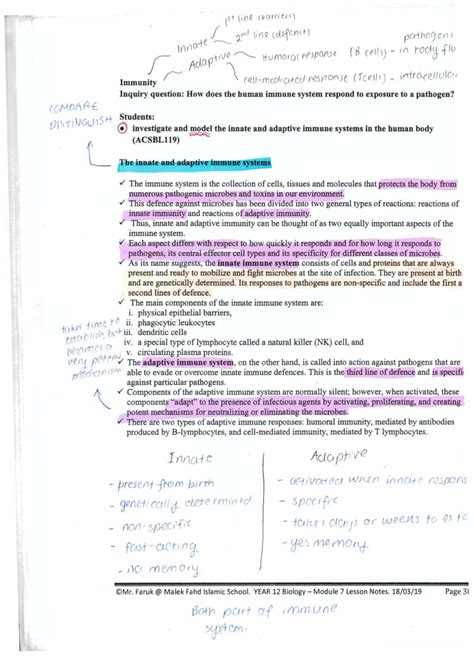 1st line (barriers)
Innate
2nd line (defence)
Adaptive
pathogens
Humoral response (B cells) - in body flu
cell-mediated response (T cells) - intracellular
Immunity
Inquiry question: How does the human immune system respond to exposure to a pathogen?
COMPARE
DISTINGUISH
Students:
investigate and model the innate and adaptive immune systems in the human body
(ACSBL119)
The innate and adaptive immune systems
✓ The immune system is the collection of cells, tissues and molecules that protects the body from
numerous pathogenic microbes and toxins in our environment.
✓ This defence against microbes has been divided into two general types of reactions: reactions of
innate immunity and reactions of adaptive immunity.
✓ Thus, innate and adaptive immunity can be thought of as two equally important aspects of the
immune system.
✓ Each aspect differs with respect to how quickly it responds and for how long it responds to
pathogens, its central effector cell types and its specificity for different classes of microbes.
✓ As its name suggests, the innate immune system consists of cells and proteins that are always
present and ready to mobilize and fight microbes at the site of infection. They are present at birth
and are genetically determined. Its responses to pathogens are non-specific and include the first a
second lines of defence.
✓ The main components of the innate immune system are:
i. physical epithelial barriers,
ii. phagocytic leukocytes
iii. dendritic cells
iv. a special type of lymphocyte called a natural killer (NK) cell, and
v. circulating plasma proteins.
takes time to
establish, but
becomes a
very potent
mechanism
✓ The adaptive immune system, on the other hand, is called into action against pathogens that are
able to evade or overcome innate immune defences. This is the third line of defence and is specifi
against particular pathogens.
✓ Components of the adaptive immune system are normally silent; however, when activated, these
components "adapt" to the presence of infectious agents by activating, proliferating, and creating
potent mechanisms for neutralizing or eliminating the microbes.
✓ There are two types of adaptive immune responses: humoral immunity, mediated by antibodies
produced by B-lymphocytes, and cell-mediated immunity, mediated by T lymphocytes.
Innate
- present from birth
- genetically determined
- non-specific
- fast-acting
- no memory
Adaptive
- activated when innate respons
- specific
- takes days or weeks to esta
- yes memory
©Mr. Faruk @ Malek Fahd Islamic School. YEAR 12 Biology – Module 7 Lesson Notes. 18/03/19 Page 3
Both part of immune
system.